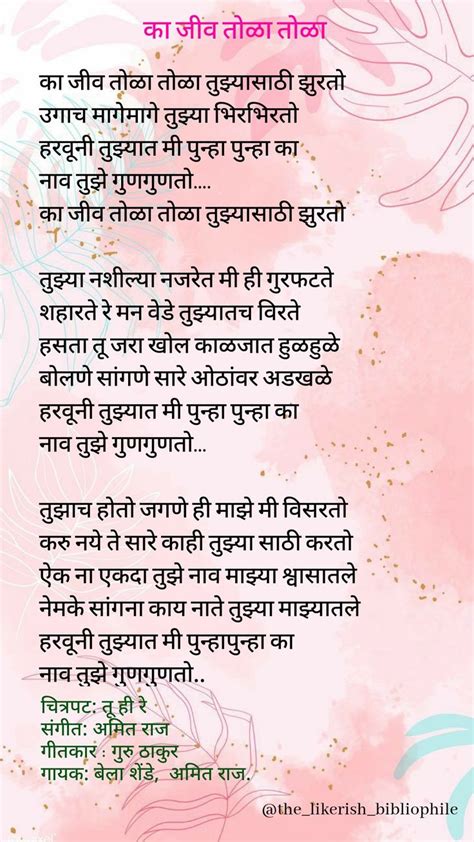 का जीव तोळा तोळा
का जीव तोळा तोळा तुझ्यासाठी झुरतो
उगाच मागेमागे तुझ्या भिरभिरतो
हरवूनी तुझ्यात मी पुन्हा पुन्हा का
नाव तुझे गुणगुणतो....
का जीव तोळा तोळा तुझ्यासाठी झुरतो
तुझ्या नशील्या नजरेत मी ही गुरफटते
शहारते रे मन वेडे तुझ्यातच विरते
हसता तू जरा खोल काळजात हुळहुळे
बोलणे सांगणे सारे ओठांवर अडखळे
हरवूनी तुझ्यात मी पुन्हा पुन्हा का
नाव तुझे गुणगुणतो...
तुझाच होतो जगणे ही माझे मी विसरतो
करु नये ते सारे काही तुझ्या साठी करतो
ऐक ना एकदा तुझे नाव माझ्या श्वासातले
नेमके सांगना काय नाते तुझ्या माझ्यातले
हरवूनी तुझ्यात मी पुन्हापुन्हा का
नाव तुझे गुणगुणतो..
चित्रपट: तू ही रे
संगीत: अमित राज
गीतकार : गुरु ठाकुर
गायक: बेला शेंडे, अमित राज.
@the_likerish_bibliophile